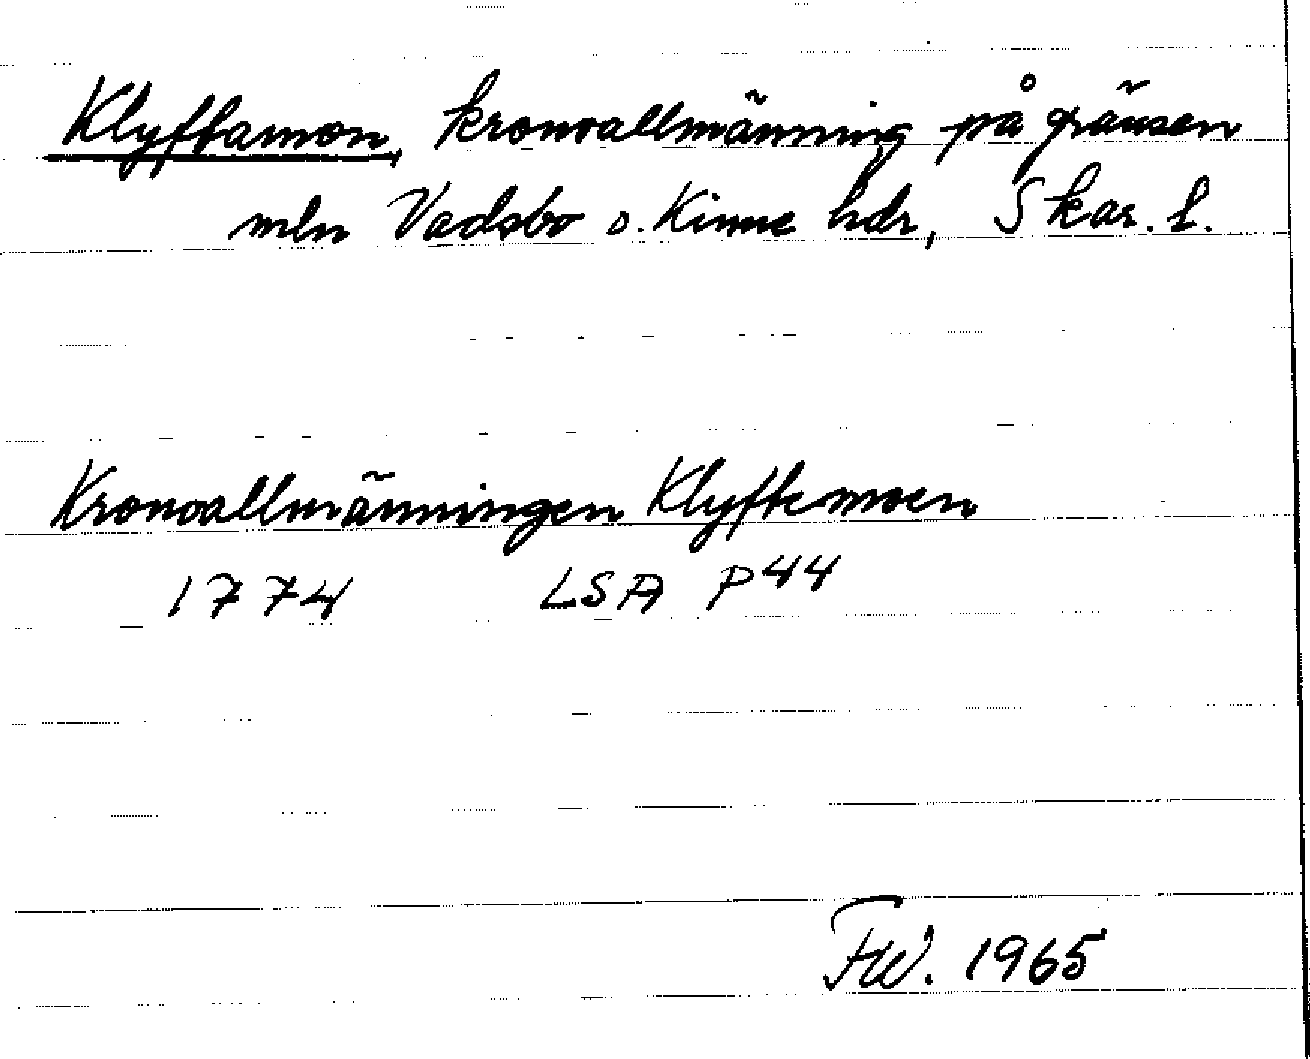 Klyftamon, kronoallmänning på gränsen
mln Vadsbo o. Kinne hdr, Skar. l.
Kronoallmänningen Klyftemoen
1774 LSA P44
FW. 1965